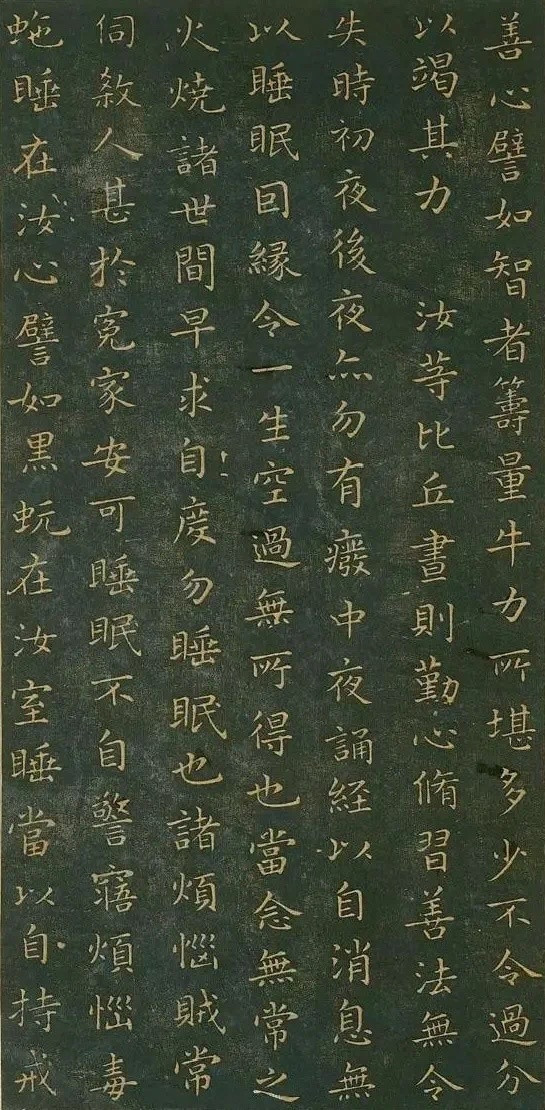 善心譬如智者籌量牛力所堪多少不令過分
以竭其力 汝等比丘晝則勤心脩習善法無令
失時初夜後夜亦勿有癈中夜誦経以自消息無
以睡眠因縁令一生空過無所得也當念無常之
火燒諸世間早求自度勿睡眠也諸煩惱賊常
伺煞人甚於寃家安可睡眠不自警寤煩惱毒
虵睡在汝心譬如黒蚖在汝室睡當以自持戒